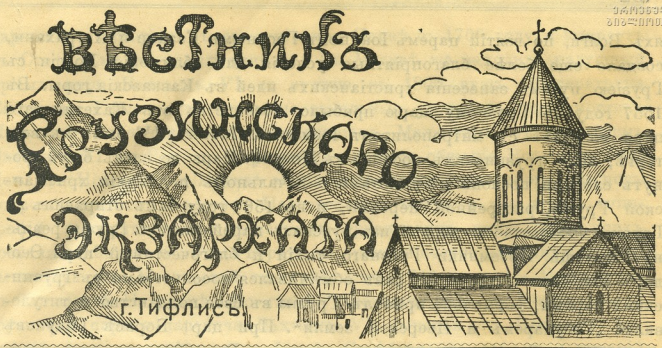 ВѢСТНИКЪ
ГРУЗИНСКАГО
ЭКЗАРХАТА
г. Тифлисъ.